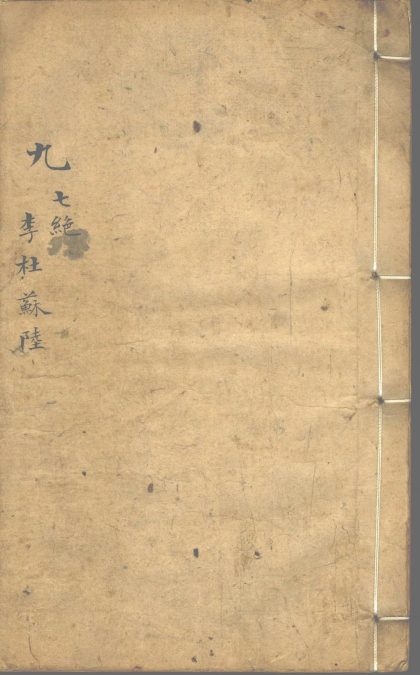 九
七絕
李杜蘇陸